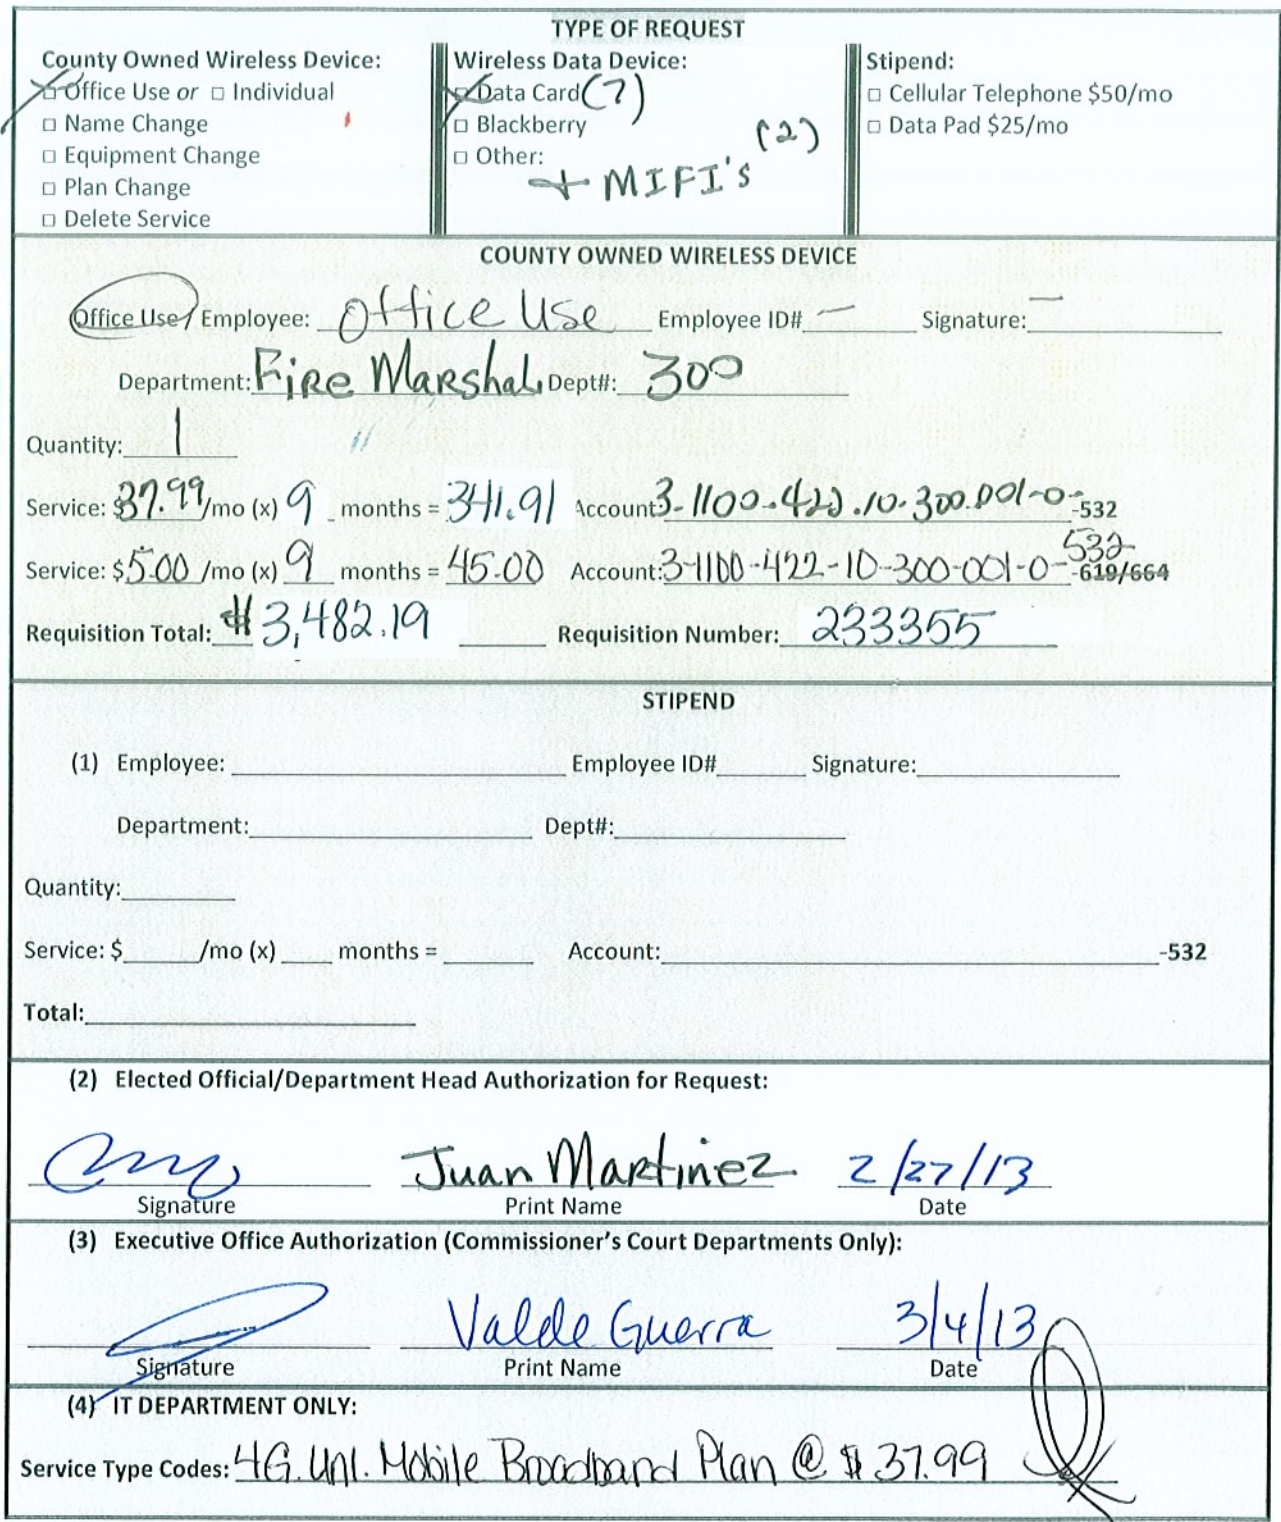 TYPE OF REQUEST
County Owned Wireless Device:
□ Office Use or □ Individual
□ Name Change
□ Equipment Change
□ Plan Change
□ Delete Service
Wireless Data Device:
□ Data Card (7)
□ Blackberry
□ Other:
+ MIFI's (2)
Stipend:
□ Cellular Telephone $50/mo
□ Data Pad $25/mo
COUNTY OWNED WIRELESS DEVICE
Office Use/ Employee: Office Use Employee ID# — Signature: —
Department: Fire Marshal Dept#: 300
Quantity: 1
Service: $37.99/mo (x) 9 months = 341.91 Account 3-1100-422.10-300.001-0--532
Service: $5.00 /mo (x) 9 months = 45.00 Account: 3-1100-422-10-300-001-0-532 -619/664
Requisition Total: $ 3,482.19 Requisition Number: 233355
STIPEND
(1) Employee: Employee ID# Signature:
Department: Dept#:
Quantity:
Service: $ /mo (x) months = Account: -532
Total:
(2) Elected Official/Department Head Authorization for Request:
Juan Martinez 2/27/13
Signature Print Name Date
(3) Executive Office Authorization (Commissioner's Court Departments Only):
Valde Guerra 3/4/13
Signature Print Name Date
(4) IT DEPARTMENT ONLY:
Service Type Codes: 4G. Unl. Mobile Broadband Plan @ $ 37.99